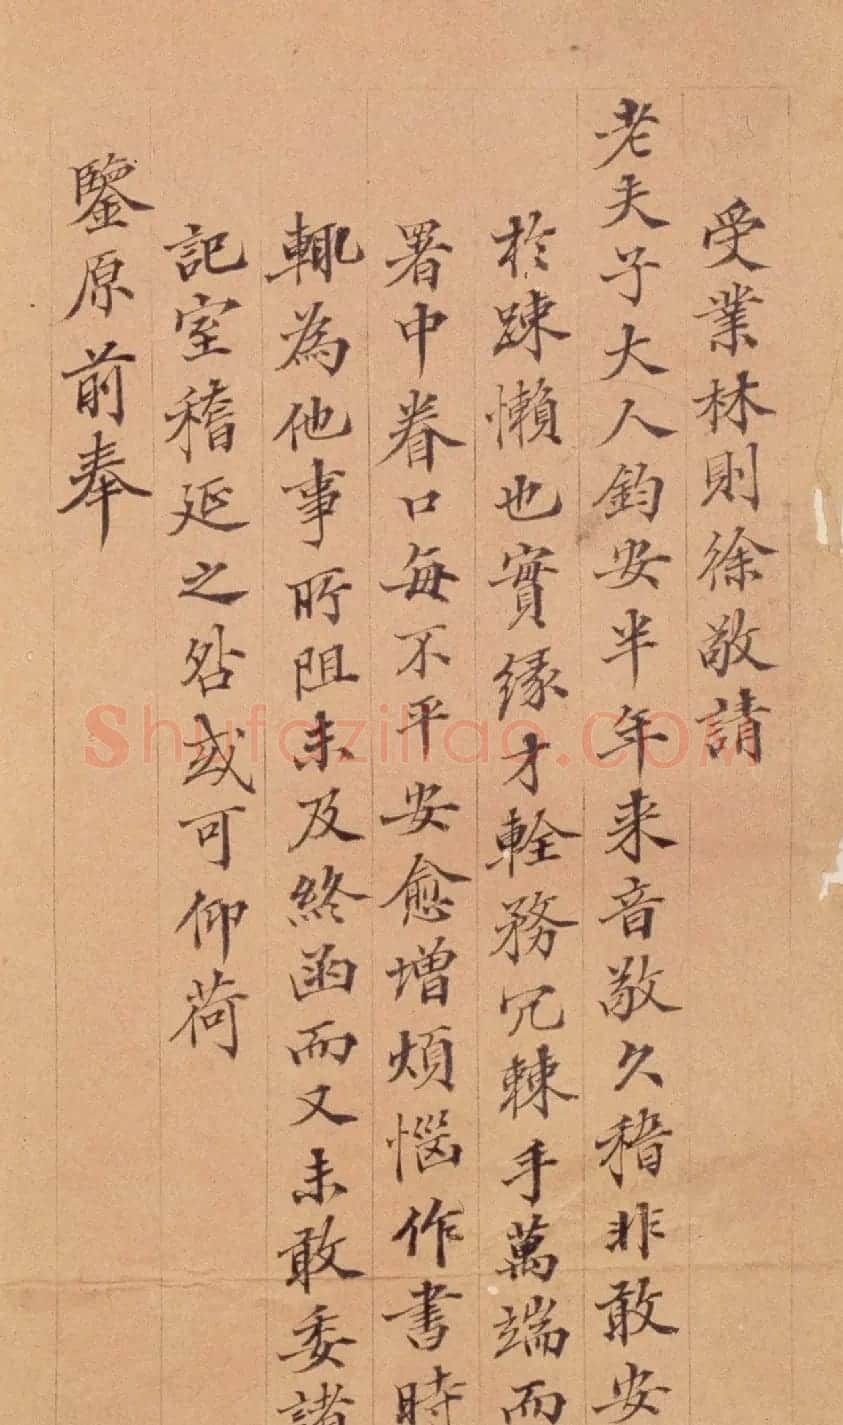 受業林則徐敬請
老夫子大人鈞安半年来音敬久稽非敢安
於踈懶也實緣才輇務冗棘手萬端而
署中眷口每不平安愈增煩惱作書時
輒為他事所阻未及終函而又未敢委諸
記室稽延之咎或可仰荷
鑒原前奉
Shufaziliao.COM